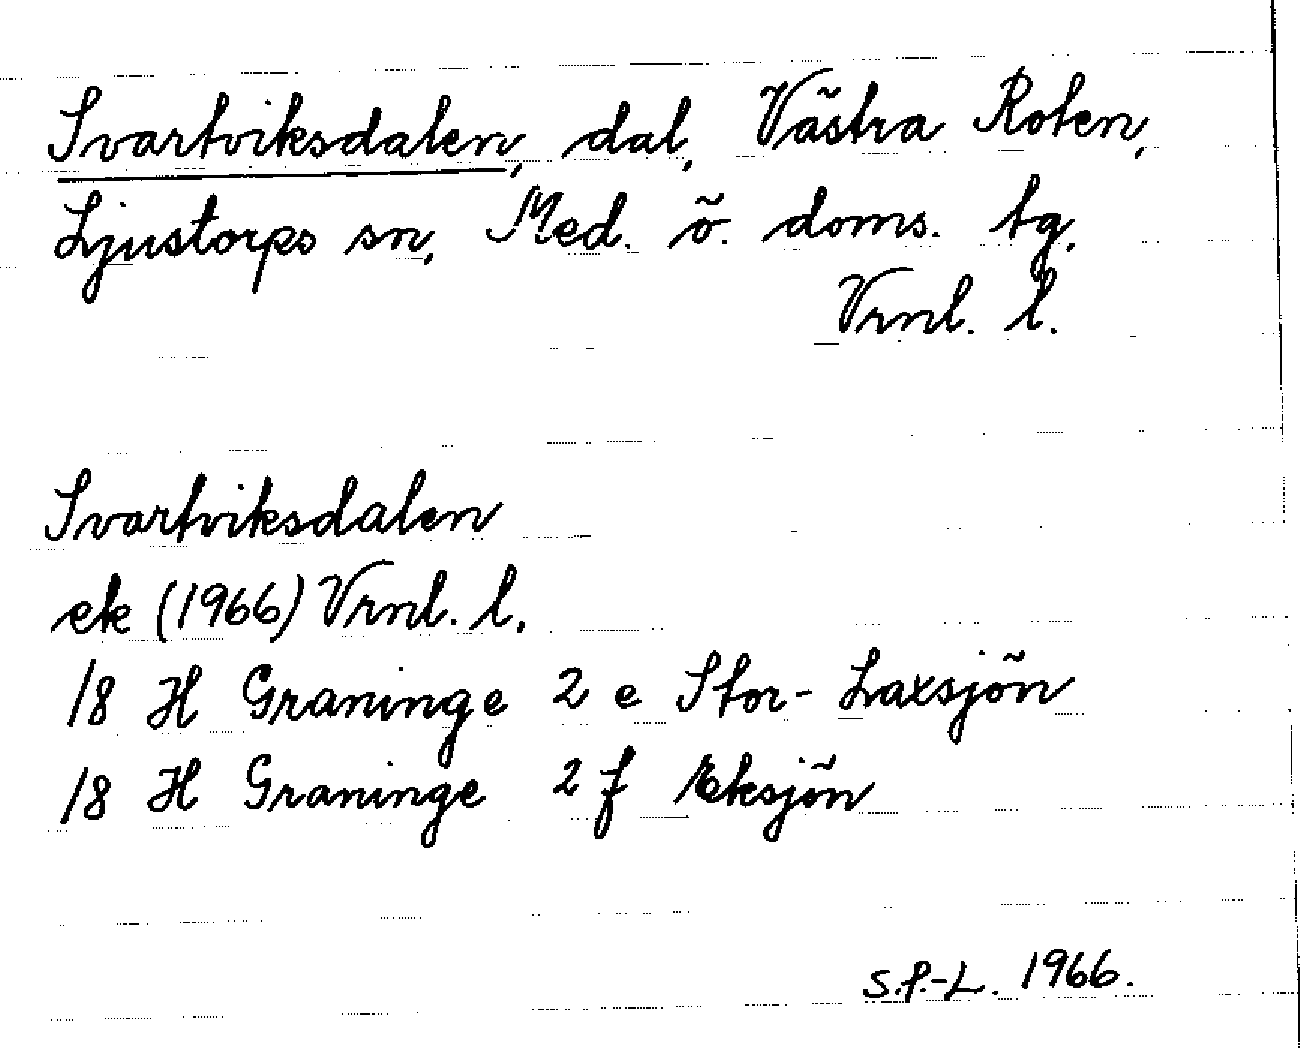 Svartviksdalen, dal, Västra Roten,
Ljustorps sn, Med. ö. doms. tg,
Vrnl. l.
Svartviksdalen
ek (1966) Vrnl. l.
18 H Graninge 2 e Stor-Laxsjön
18 H Graninge 2 f Eksjön
S.P.-L. 1966.